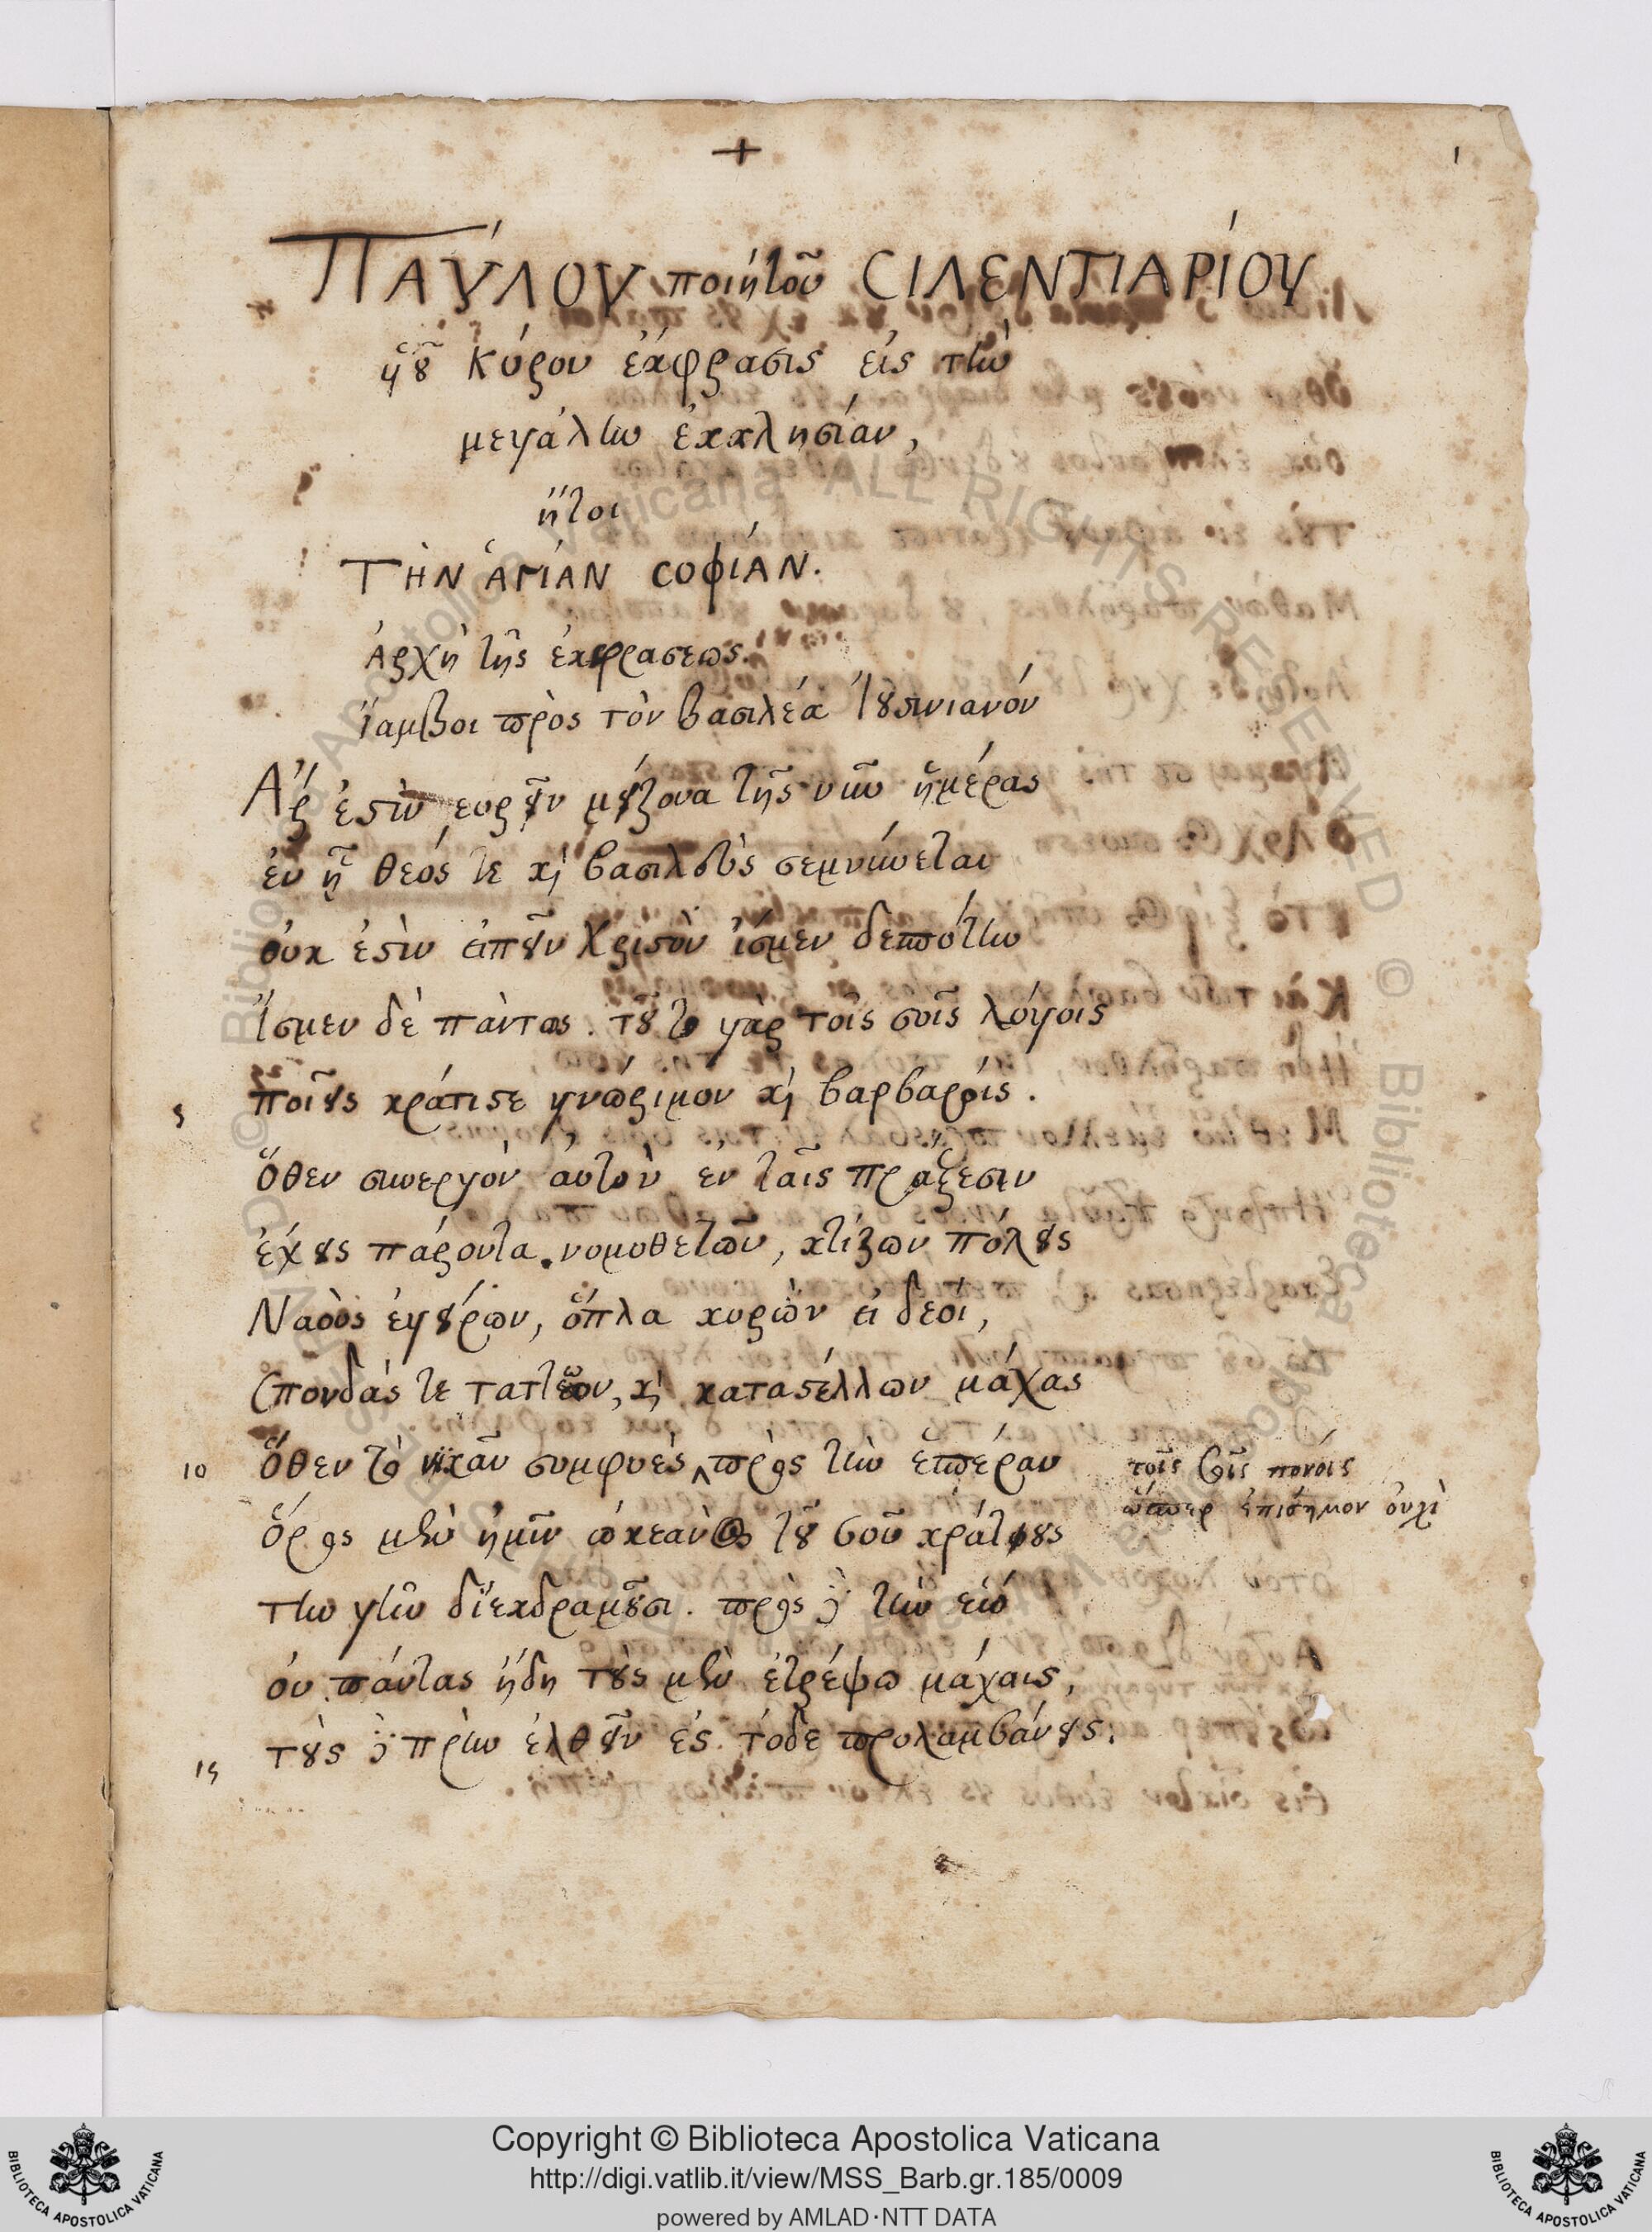 +
1
ΠΑΎΛΟΥ ποιητοῦ CΙΛΕΝΤΙΑΡΊΟΥ
ὑοῦ Κύρου ἐκφρασις εἰς τὴν
μεγάλην ἐκκλησίαν,
ἤτοι
ΤῊΝ ἉΓΊΑΝ CΟΦΊΑΝ.
Ἀρχὴ τῆς ἐκφρασεως.
Ἴαμβοι πρὸς τὸν βασιλέα Ἰουστινιανόν
Ἆρ ἐστὶν εὑρεῖν μείζονα τῆς νῦν ἡμέρας
ἐν ᾗ θεός τε καὶ βασιλεὺς σεμνύνεται
οὐκ ἐστὶν εἰπεῖν Χριστὸν ἴσμεν δεσπότην
Ἴσμεν δὲ πάντως. τοῦτο γὰρ τοῖς σοῖς λόγοις
5 ποιεῖς κράτιστε γνώριμον καὶ βαρβάροις.
Ὅθεν συνεργὸν αὐτὸν ἐν ταῖς πράξεσιν
ἔχεις πάροντα. νομοθετῶν, κτίζων πόλεις
Ναοὺς ἐγείρων, ὅπλα κυρῶν εἰ δεοι,
Σπονδάς τε ταττέων, καὶ καταστέλλων μάχας
10 Ὅθεν τὸ νικᾶν συμφυὲς ^ πρὸς τὴν ἑσπέραν
τοῖς σοῖς πονοις
ὥσπερ ἐπισημον οὐχὶ
Ὅρος μὲν ἡμῖν ὠκεανὸς τοῦ σοῦ κράτους
την γῆν διεκδραμοῦσι. πρὸς δὲ τὴν εὡ
οὐ πάντας ἤδη τοὺς μὲν ἐτρέψω μάχαις,
15 τοὺς δὲ πρὶν ἐλθεῖν ἐς τόδε προλαμβάνεις.
© Biblioteca Apostolica Vaticana ALL RIGHTS RESERVED
Copyright © Biblioteca Apostolica Vaticana
http://digi.vatlib.it/view/MSS_Barb.gr.185/0009
powered by AMLAD·NTT DATA
BIBLIOTECA APOSTOLICA VATICANA
BIBLIOTECA APOSTOLICA VATICANA